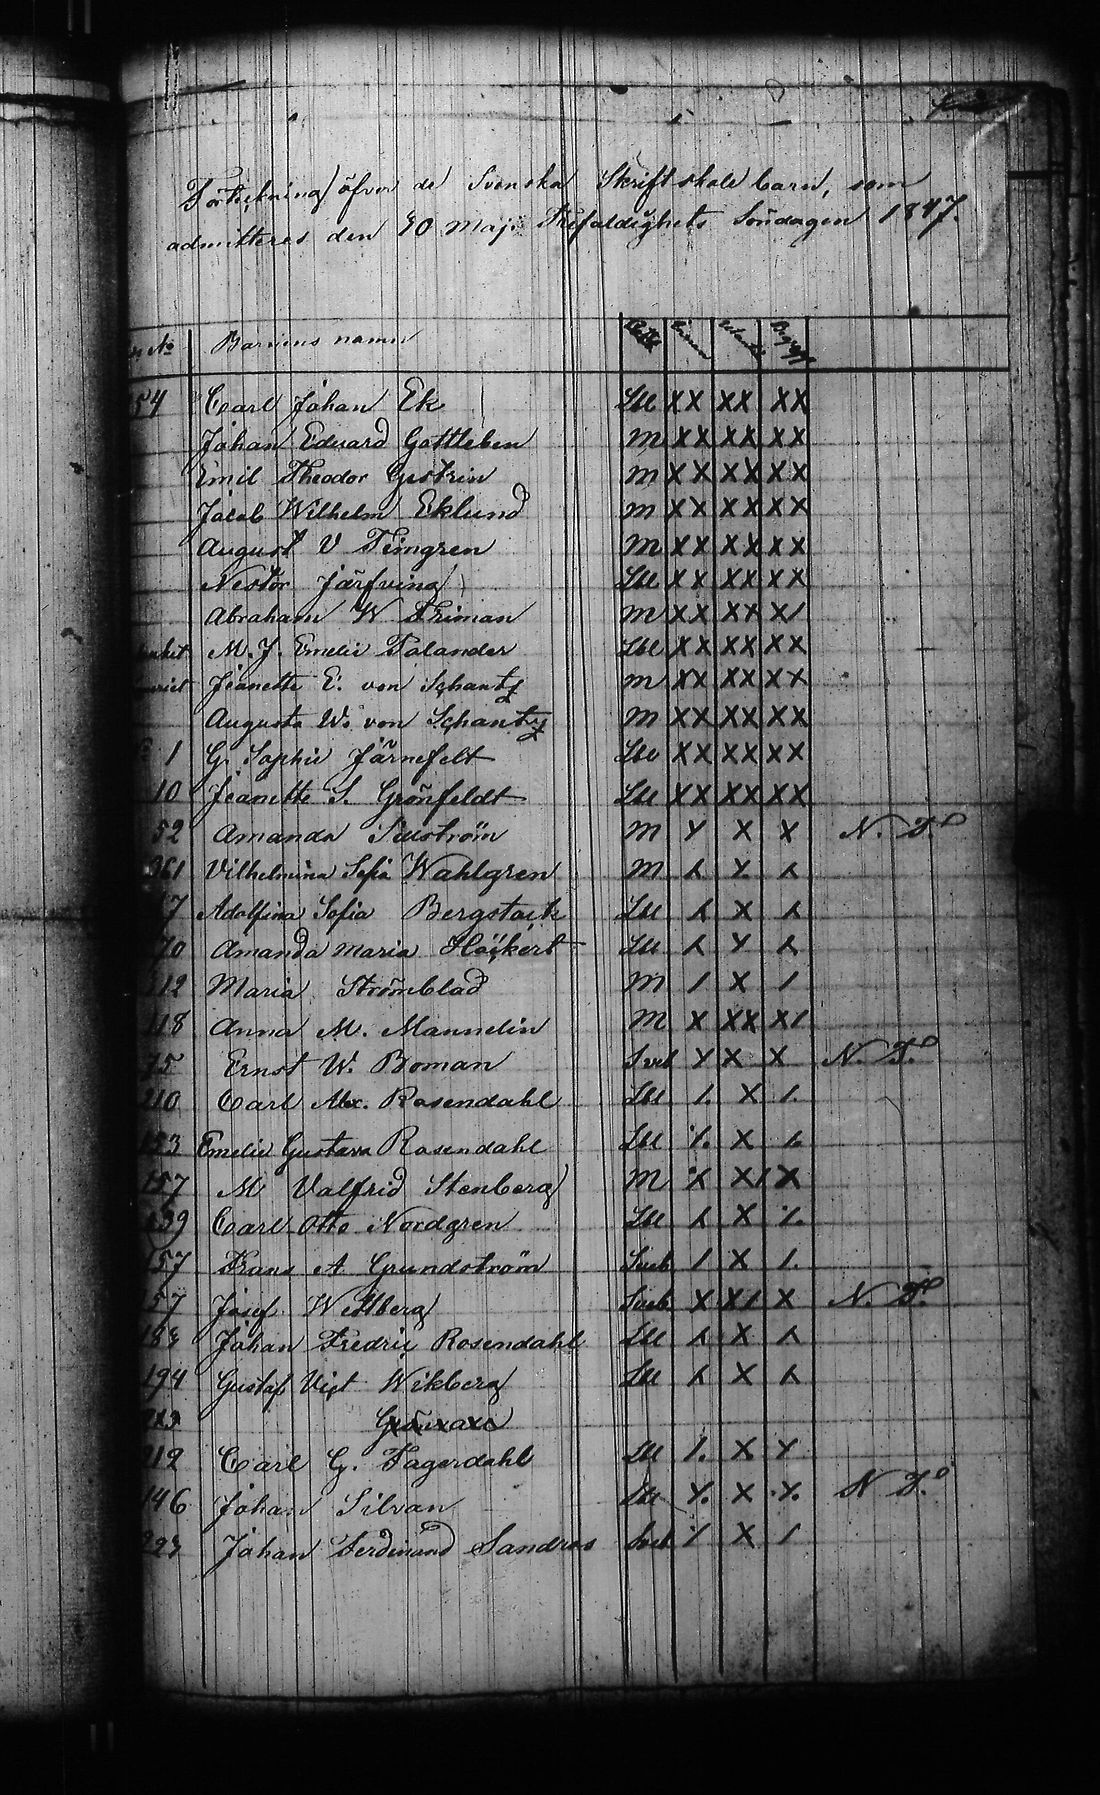 Förtekning öfver de Svenska Skriftskole barn, som
admitteres den 30 Maji Trefaldighets Söndagen 1847.
No Barnens namn
54 Carl Johan Ek Lbl XX XX XX
Johan Eduard Gottleben M XX XX XX
Emil Theodor Gestrin M XX XX XX
Jacob Wilhelm Eklund M XX XX XX
August V Timgren M XX XX XX
Nestor Järfving Lbl XX XX XX
Abraham W Friman M XX XX X/
M. J. Emelie Palander Lbl XX XX XX
Jeanette E. von Schantz M XX XX XX
Augusta W. von Schantz M XX XX XX
1 G. Sophie Järnefelt XX XX XX
10 Jeanette S. Grönfeldt Lbl XX XX XX
52 Amanda M X X N. Fo
361 Vilhelmina Sofia Wahlgren M
17 Adolfina Sofia Lbl X
70 Amanda Maria Höckert Lbl
112 Maria Strömblad M / X /
118 Anna M. Mannelin M X XX X/
15 Ernst W. Boman X X N. Fo
210 Carl Alex. Rosendahl Lbl /. X /.
153 Emelie Gustava Rosendahl Lbl X
157 M Valfrid Stenberg M X/ X
139 Carl Otto Nordgren Lbl X
157 Frans A Grundström / X /.
57 Josef Widberg X X/ X N. Fo
183 Johan Fredric Rosendahl Lbl X
194 Gustaf Wikberg Lbl X
212 Carl G. Fagerdahl Lbl /. X
146 Johan Silvan Lbl X N Fo
223 Johan Ferdinand Sandros / X /